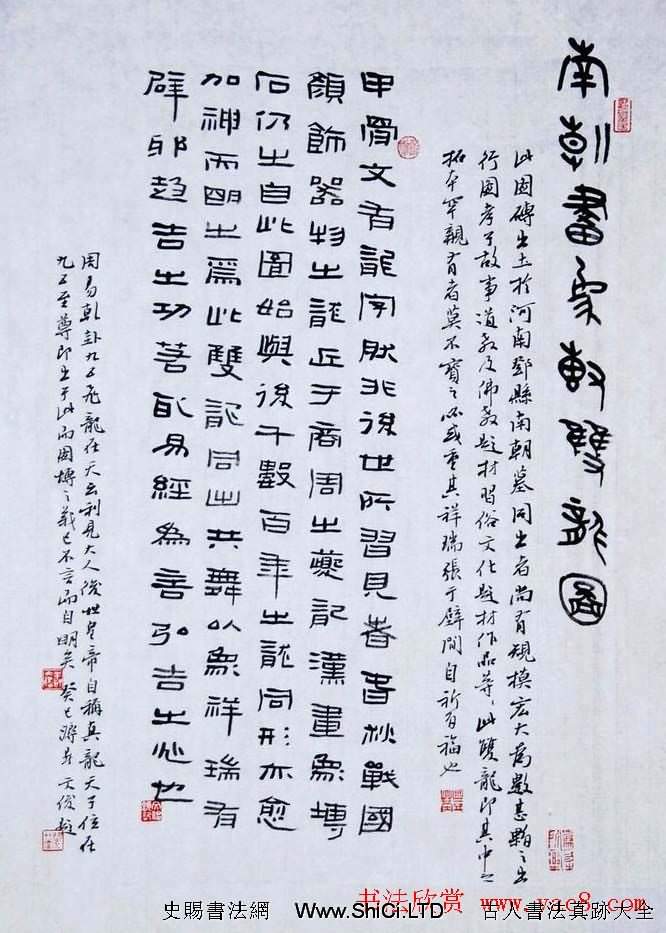 南朝畫象軔雙龍圖
此圖磚出土於河南鄧縣南朝墓同出者尚有規模宏大為數甚夥之出
行圖孝子故事道教及佛教題材習俗文化題材作品等等此雙龍即其中之
拓本罕親有者莫不寶之或重其祥瑞張于壁間自祈百福也
甲骨文有龍字肰非後世所習見者春秋戰國
顏飾器物之龍近于商周之夔記漢畫象塼
石仍之自此圖始與後千數百年之龍同形亦愈
加神而明之為此雙龍同出共舞以象祥瑞有
辟邪趋吉之功蓍配易經為言弘吉之兆也
周易乾卦九五飛龍在天云利見大人後世皇帝自稱真龍天子位在
九五至尊即出于此而圖塼之義已不言而自明矣 癸巳 文俊題
书法欣赏 www.yac8.com
史賜書法網 Www.ShiCi.LTD 古人書法真跡大全